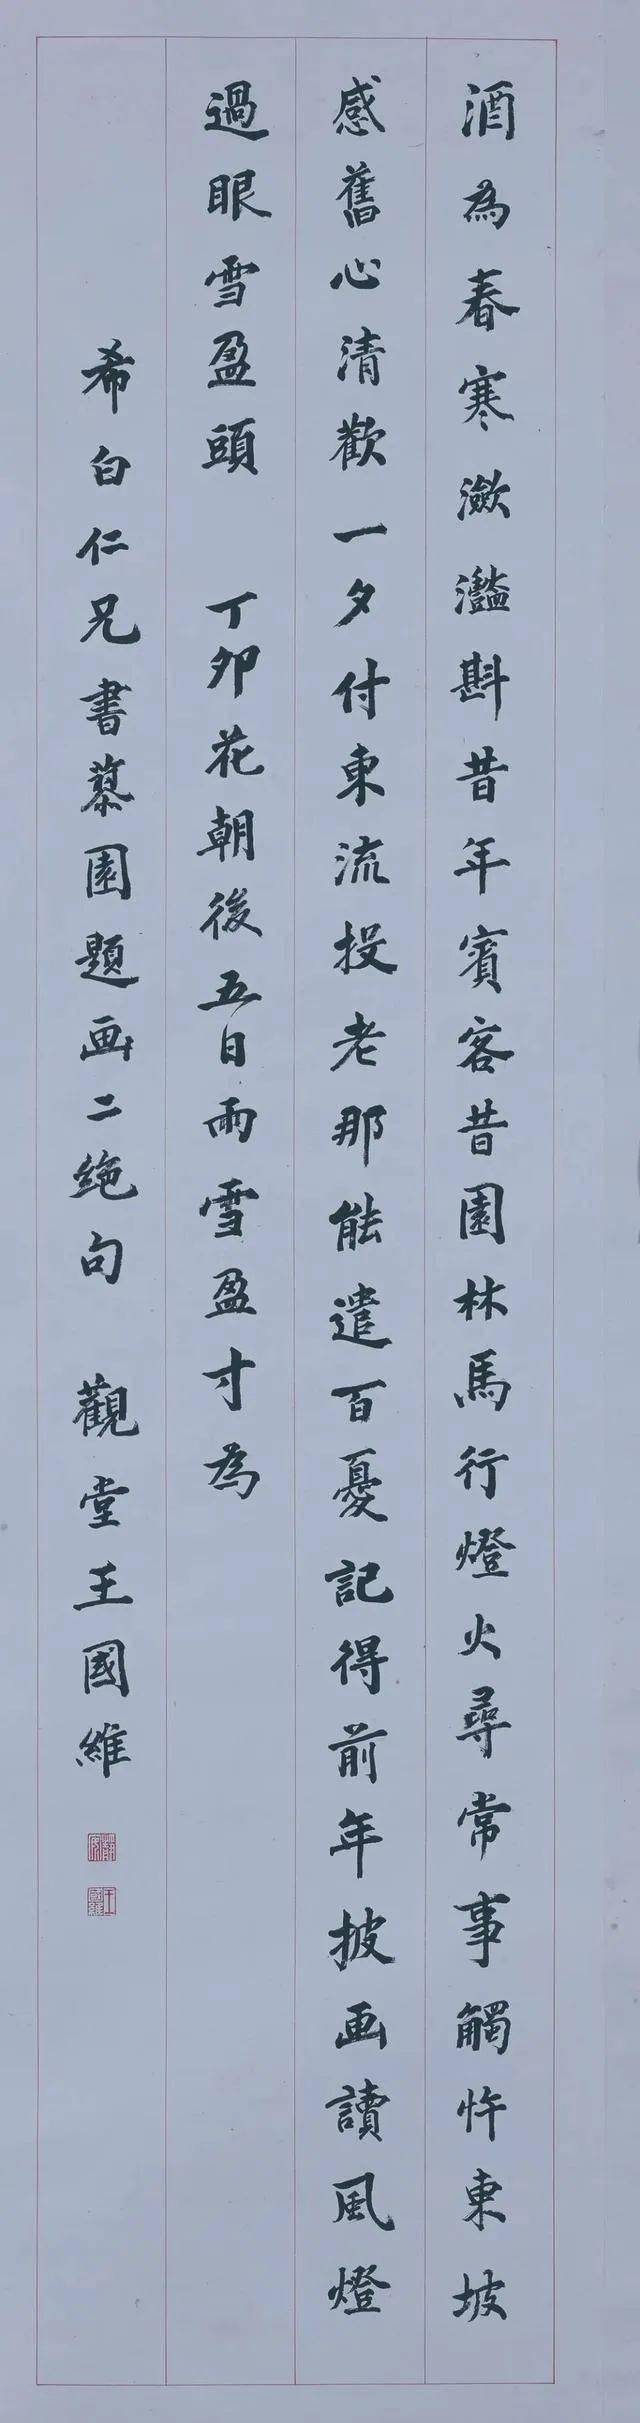 酒為春寒潋灩斟昔年賓客昔園林馬行燈火尋常事觸忤東坡
感舊心清歡一夕付東流投老那能遣百憂記得前年披画讀風燈
過眼雪盈頭 丁卯花朝後五日雨雪盈寸為
希白仁兄書慕園題画二绝句 觀堂王國維
靜安
王國維